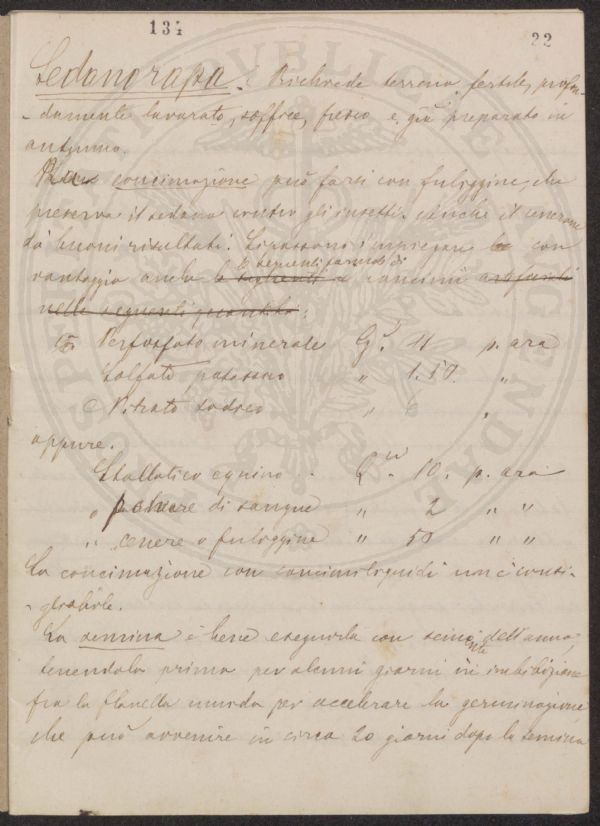 134
22
Sedanorapa. Richiede terreno fertile, profon-
damente lavorato, soffice, fresco e già preparato in
autunno.
La concimazione può farsi con fuliggine, che
preserva il sedano contro gli insetti. Anche il cenerone
dà buoni risultati. Si possono impiegare le con
le seguenti formole di
vantaggio anche le seguenti e concimi artificiali
nelle seguenti quantità:
Perfosfato minerale Cg. 4 p. ara
Solfato potassico " 1.50. "
Nitrato sodico " 6 "
oppure.
Stallatico equino Q. 10. p. ara
" polvere di sangue " 2 " "
" cenere o fuliggine " 50 " "
La concimazione con concimi liquidi non è consi-
gliabile.
La semina è bene eseguirla con seme dell'anno,
tenendola prima per alcuni giorni in imbibizione
fra la flanella umida per accelerare la germinazione
che può avvenire in circa 20 giorni dopo la semina